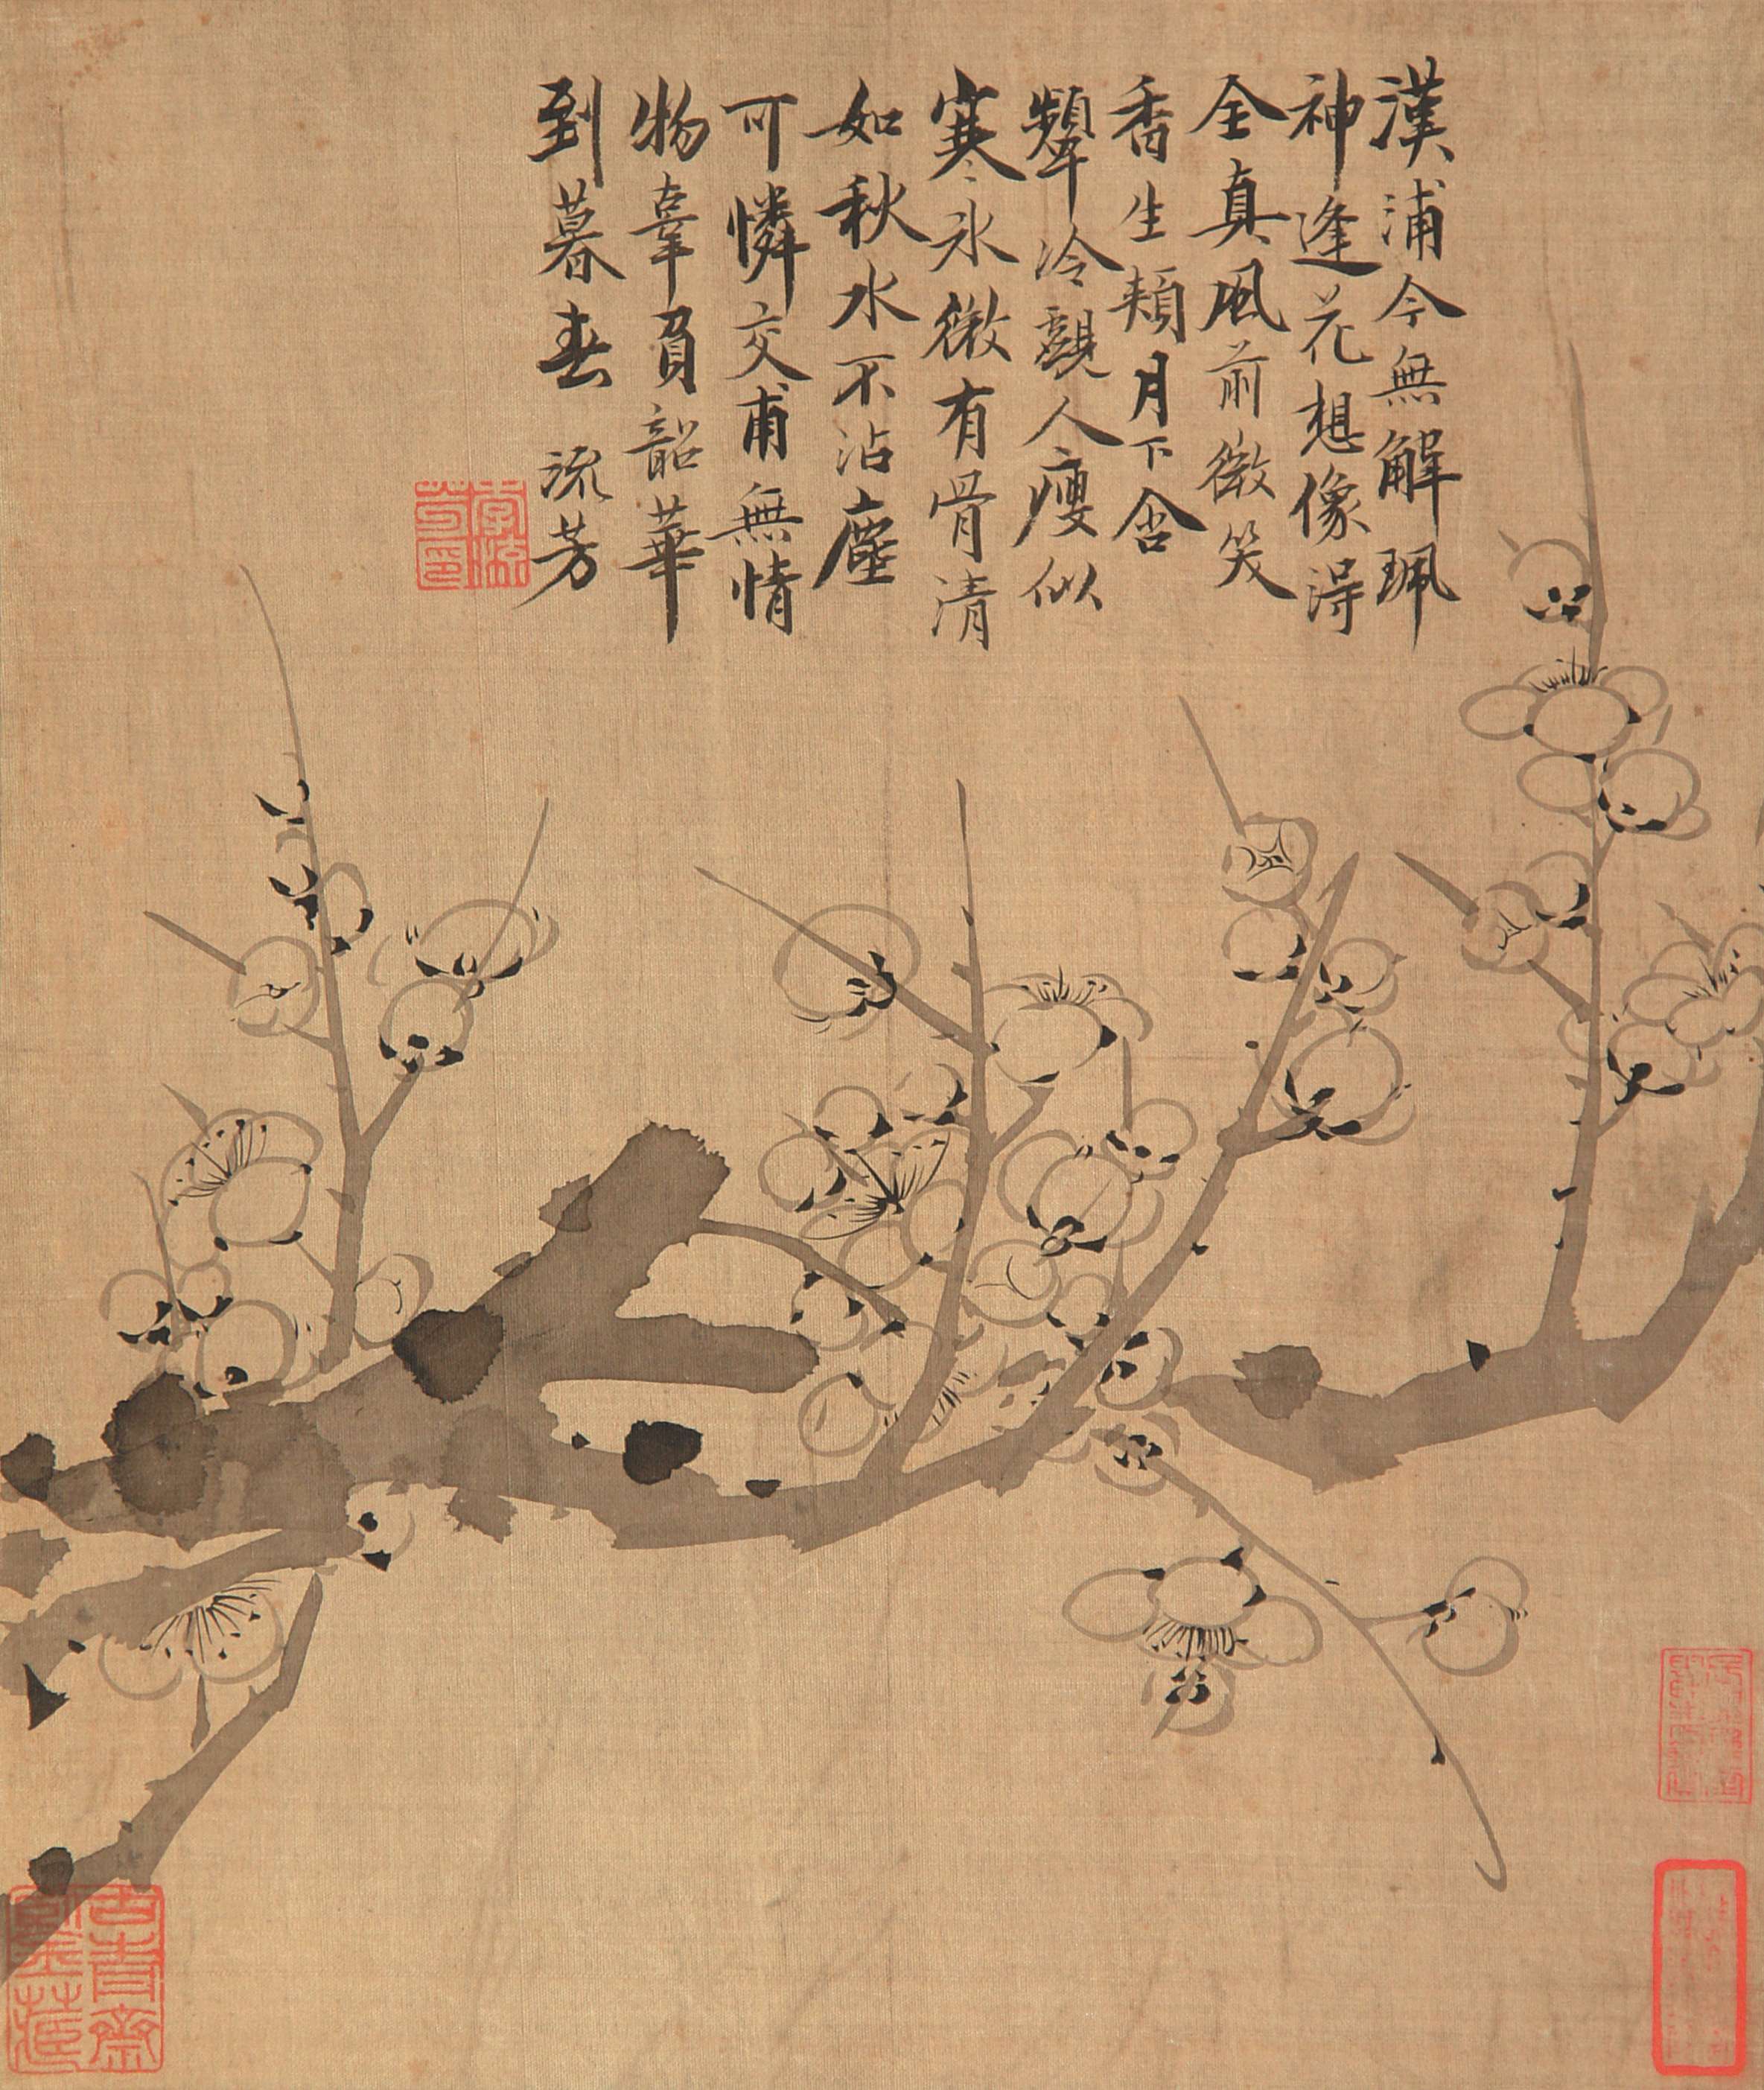 漢浦今無解珮
神逢花想像得
全真風前微笑
香生頰月下含
顰冷覷人瘦似
寒冰微有骨清
如秋水不沾塵
可憐交甫無情
物辜負韶華
到暮春 流芳
李流芳印